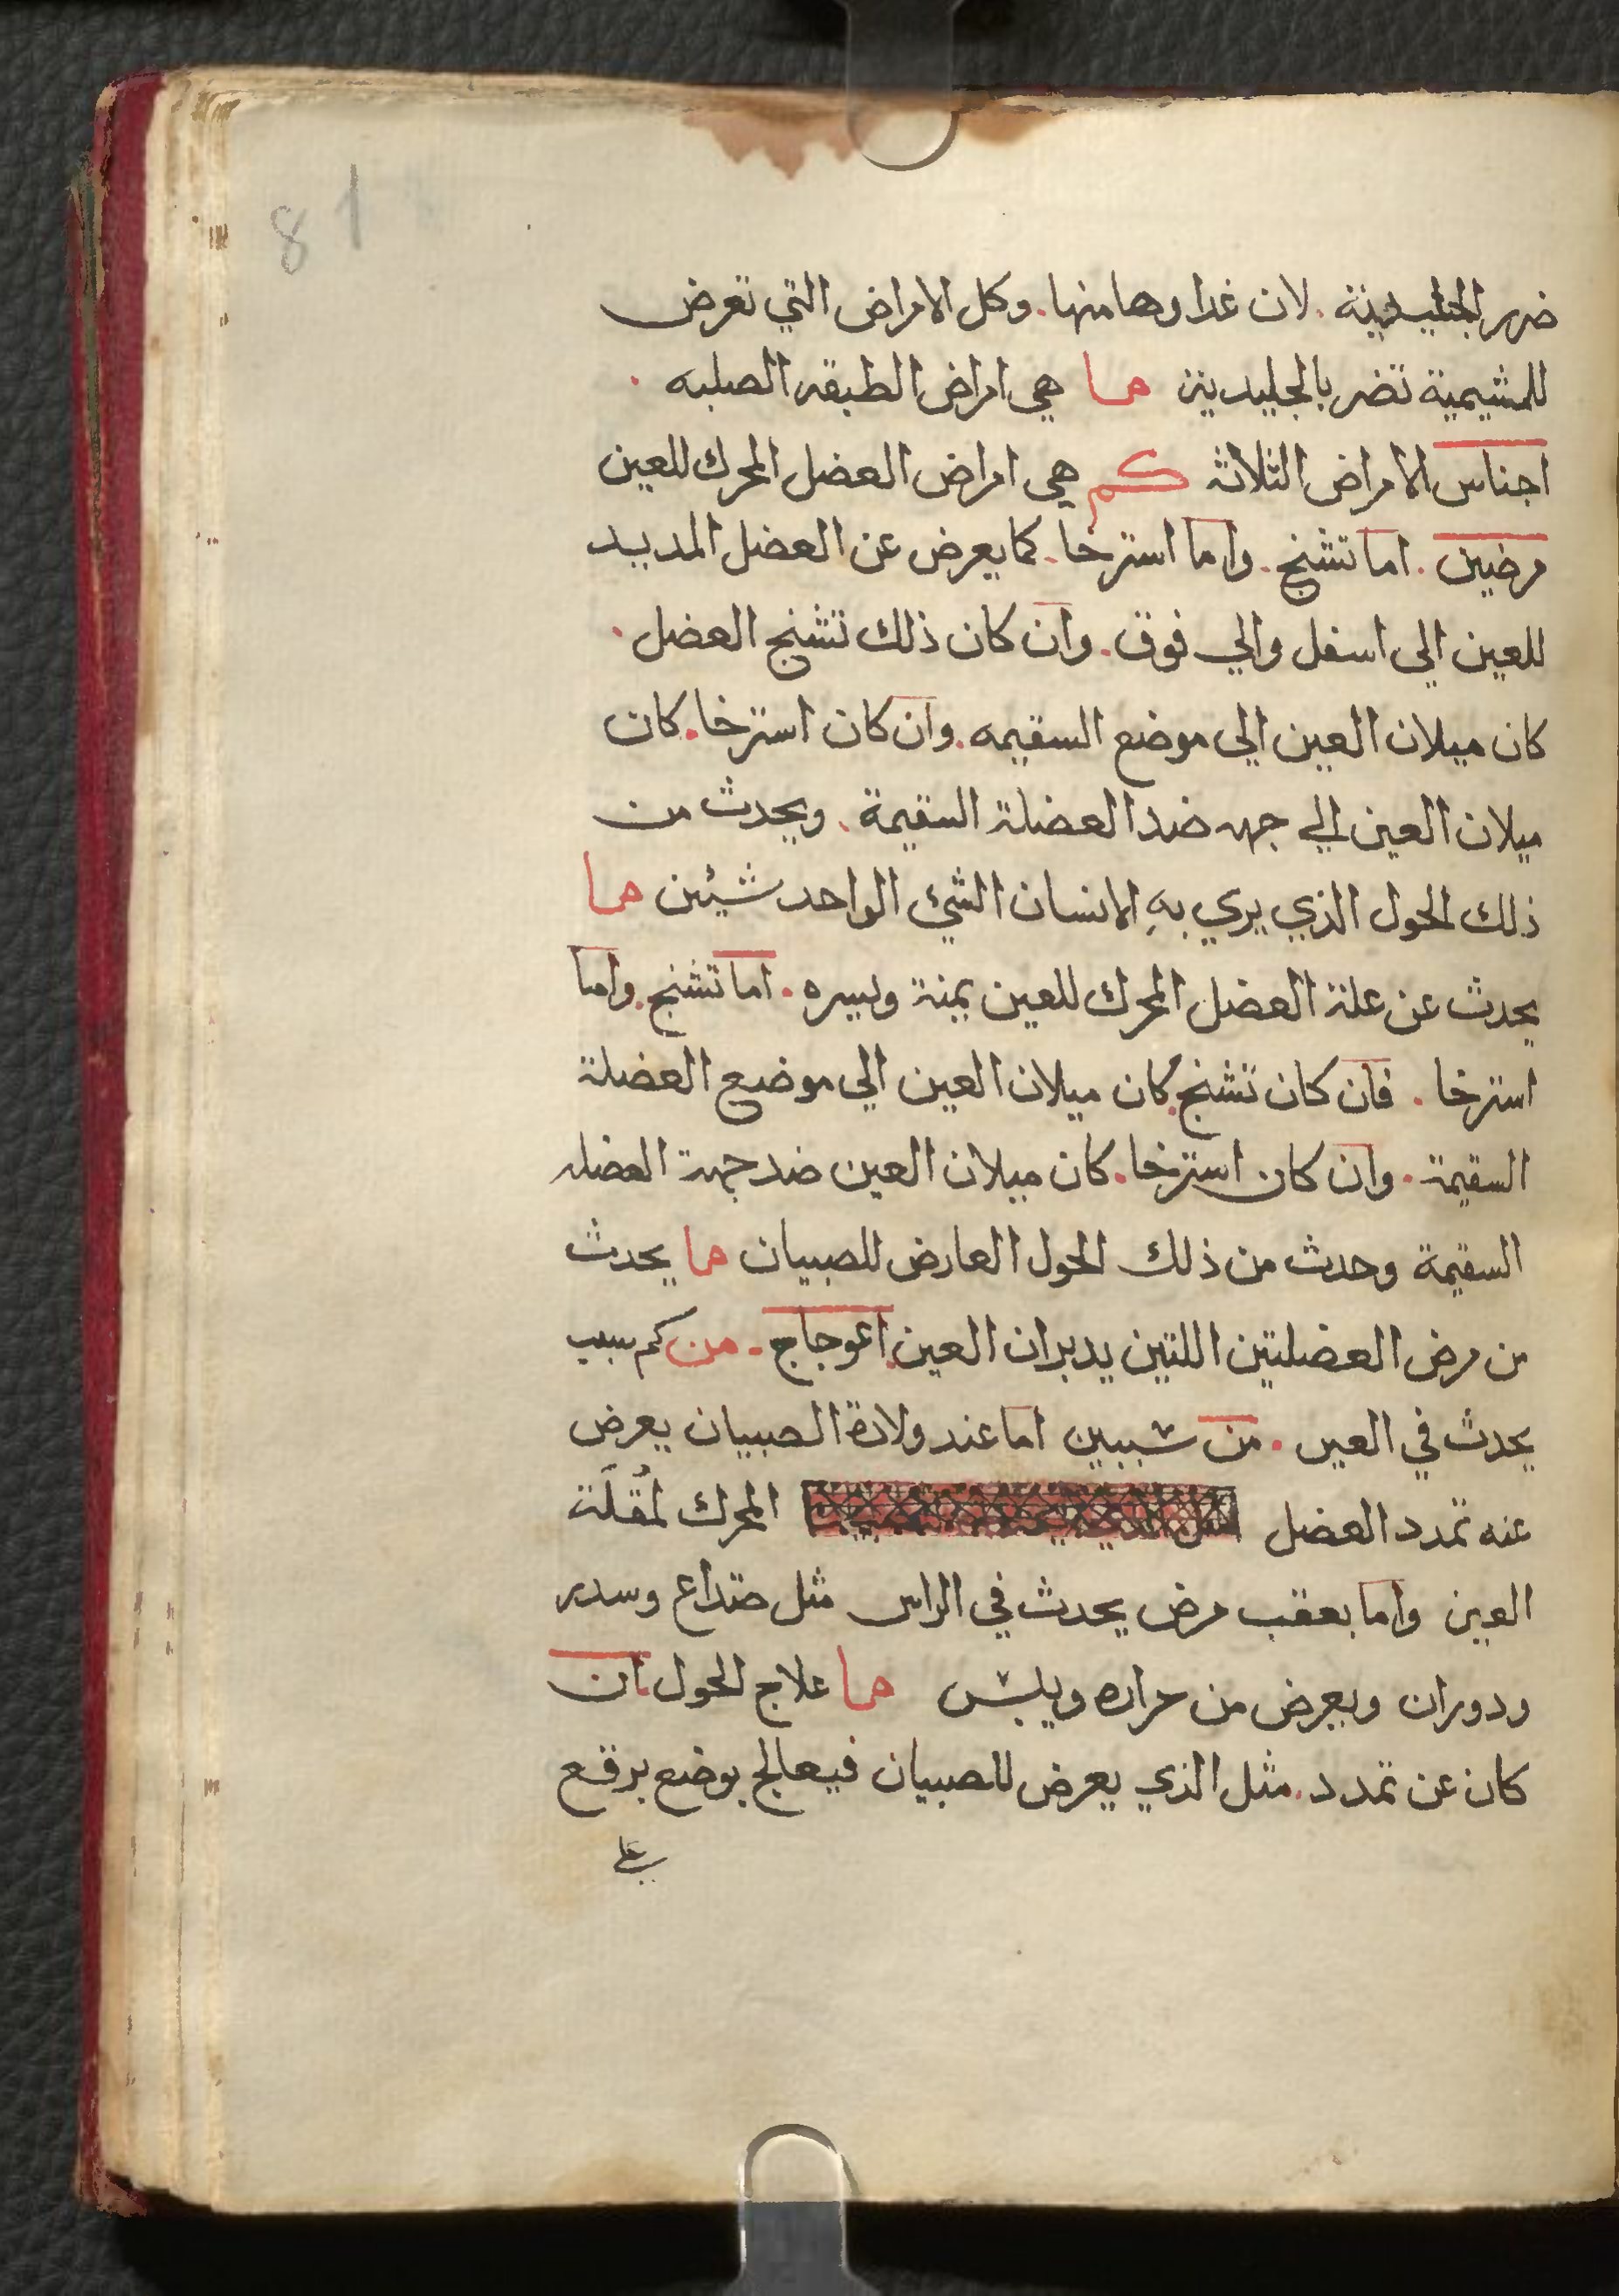 81
ضرر الجليدية. لان غداوها منها. وكل الامراض التي تعرض
للمشيمية تضر بالجليدية ما هي امراض الطبقه الصلبه.
اجناس الامراض الثلاثه كم هي امراض العضل المحرك للعين
مرضين. اما تشنج. واما استرخا. كما يعرض عن العضل المديد
للعين الي اسفل والي فوق. وان كان ذلك تشنج العضل.
كان ميلان العين الي موضع السقيمه. وان كان استرخا. كان
ميلان العين الي جهه ضد العضلة السقيمة. ويحدث من
ذلك الحول الذي يري بهِ الانسان الشئ الواحد شيئن ما
يحدث عن علة العضل المحرك للعين يمنة ويسره. اما تشنج. واما
استرخا. فان كان تشنج. كان ميلان العين الي موضع العضلة
السقيمة. وان كان استرخا. كان ميلان العين ضد جهة العضله
السقيمة وحدث من ذلك الحول العارض للصبيان ما يحدث
من مرض العضلتين اللتين يديران العين. اعوجاج. من كم سبب
يحدث في العين. من سببين اما عند ولادة الصبيان يعرض
عنه تمدد العضل المحرك لمُقلَة
العين واما بعقب مرض يحدث في الراس مثل صداع وسدر
ودوران ويعرض من حراره ويبس ما علاج الحول. ان
كان عن تمدد. مثل الذي يعرض للصبيان فيعالج بوضع برقع
علي